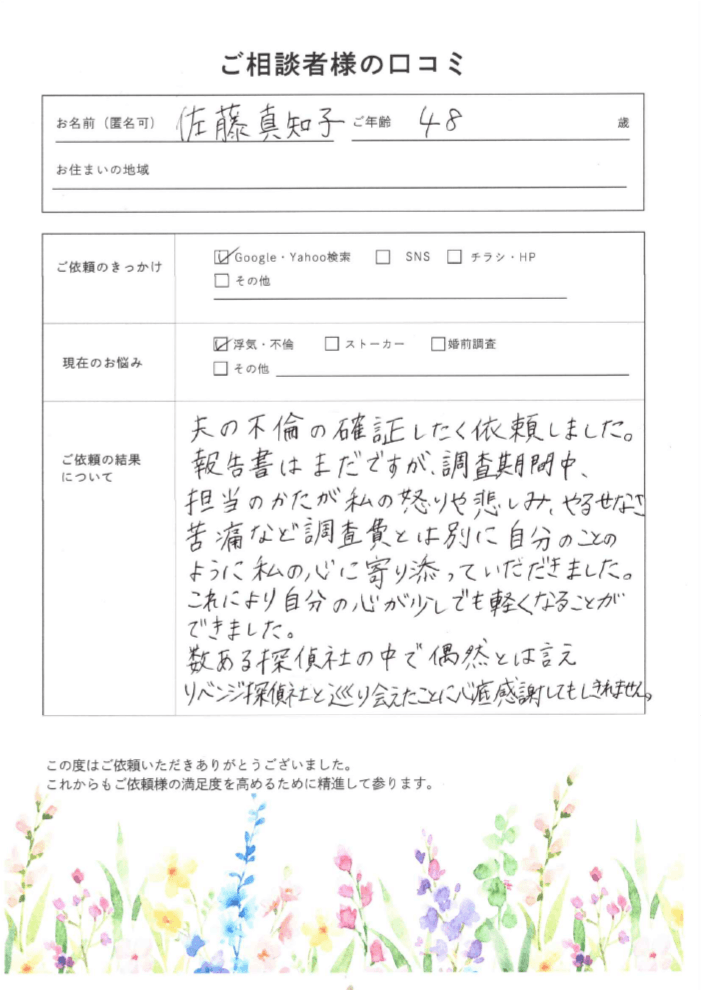 ご相談者様の口コミ
お名前（匿名可） 佐藤真知子 ご年齢 48 歳
お住まいの地域
ご依頼のきっかけ
☑Google・Yahoo検索 □ SNS □ チラシ・HP
□ その他
現在のお悩み
☑浮気・不倫 □ ストーカー □婚前調査
□ その他
ご依頼の結果
について
夫の不倫の確証したく依頼しました。
報告書はまだですが、調査期間中、
担当のかたが私の怒りや悲しみ、やるせなさ
苦痛など調査費とは別に自分のことの
ように私の心に寄り添っていだだきました。
これにより自分の心が少しでも軽くなることが
できました。
数ある探偵社の中で偶然とは言え
リベンジ探偵社と巡り会えたことに心底感謝してもしきれません。
この度はご依頼いただきありがとうございました。
これからもご依頼様の満足度を高めるために精進して参ります。